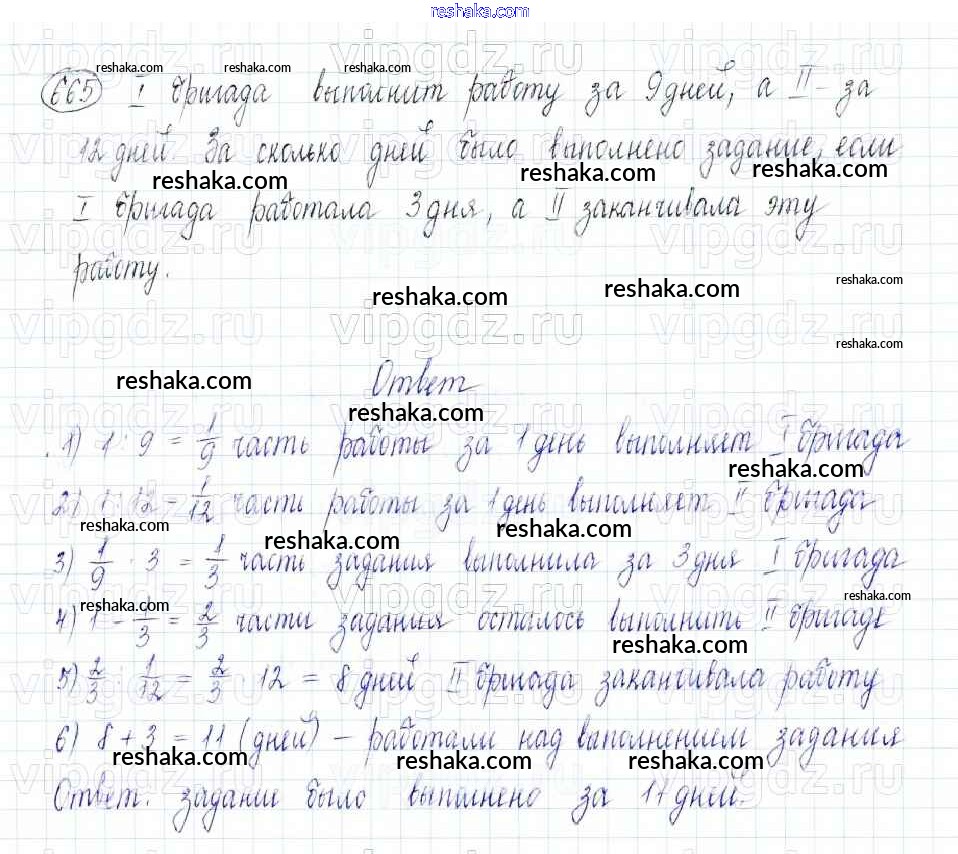 reshaka.com
665 I бригада выполнит работу за 9 дней, а II - за
12 дней. За сколько дней было выполнено задание, если
I бригада работала 3 дня, а II заканчивала эту
работу.
Ответ
1) 1 : 9 = 1/9 часть работы за 1 день выполняет I бригада
2) 1 : 12 = 1/12 часть работы за 1 день выполняет II бригада
3) 1/9 · 3 = 1/3 часть задания выполнила за 3 дня I бригада
4) 1 - 1/3 = 2/3 части задания осталось выполнить II бригаде
5) 2/3 : 1/12 = 2/3 · 12 = 8 дней II бригада заканчивала работу
6) 8 + 3 = 11 (дней) – работали над выполнением задания
Ответ. задание было выполнено за 11 дней.